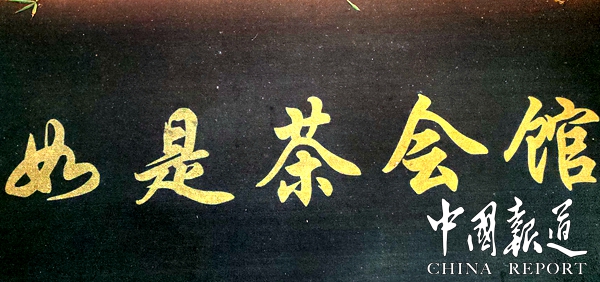 如是茶会馆
中國報道
CHINA REPORT